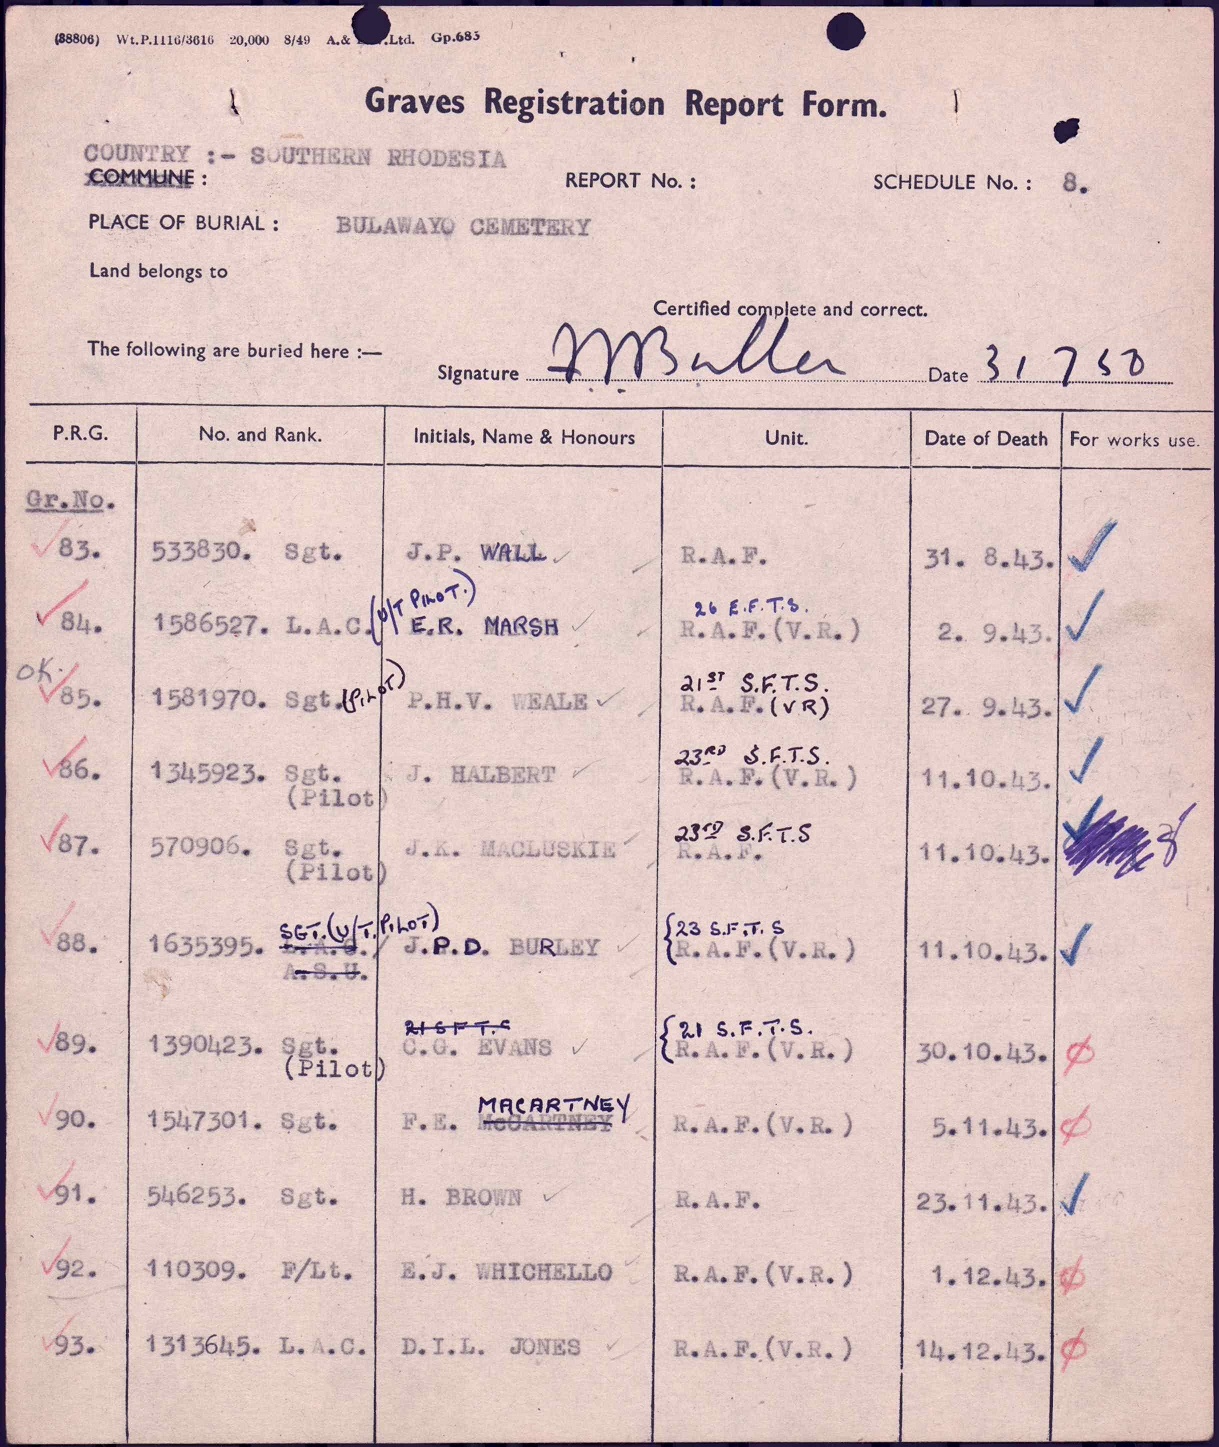 (88806) Wt.P.1116/3616 20,000 8/49 A.& .Ltd. Gp.685
Graves Registration Report Form.
COUNTRY :- SOUTHERN RHODESIA
COMMUNE : REPORT No. : SCHEDULE No. : 8.
PLACE OF BURIAL : BULAWAYO CEMETERY
Land belongs to
Certified complete and correct.
The following are buried here :—
Signature Date 31 7 50
P.R.G. No. and Rank. Initials, Name & Honours Unit. Date of Death For works use.
Gr.No.
83. 533830. Sgt. J.P. WALL R.A.F. 31. 8.43.
(U/T PILOT.) 26 E.F.T.S.
84. 1586527. L.A.C. E.R. MARSH R.A.F.(V.R.) 2. 9.43.
OK. 21ST S.F.T.S.
85. 1581970. Sgt. (PILOT) P.H.V. WEALE R.A.F.(VR) 27. 9.43.
23RD S.F.T.S.
86. 1345923. Sgt. J. HALBERT R.A.F.(V.R.) 11.10.43.
(Pilot)
23RD S.F.T.S
87. 570906. Sgt. J.K. MACLUSKIE R.A.F. 11.10.43.
(Pilot)
SGT. (U/T. PILOT) 23 S.F.T.S
88. 1635395. L.A.C./ J.P.D. BURLEY R.A.F.(V.R.) 11.10.43.
A.S.U.
21 S F T.S 21 S.F.T.S.
89. 1390423. Sgt. C.G. EVANS R.A.F.(V.R.) 30.10.43.
(Pilot)
MACARTNEY
90. 1547301. Sgt. F.E. McCARTNEY R.A.F.(V.R.) 5.11.43.
91. 546253. Sgt. H. BROWN R.A.F. 23.11.43.
92. 110309. F/Lt. E.J. WHICHELLO R.A.F.(V.R.) 1.12.43.
93. 1313645. L.A.C. D.I.L. JONES R.A.F.(V.R.) 14.12.43.